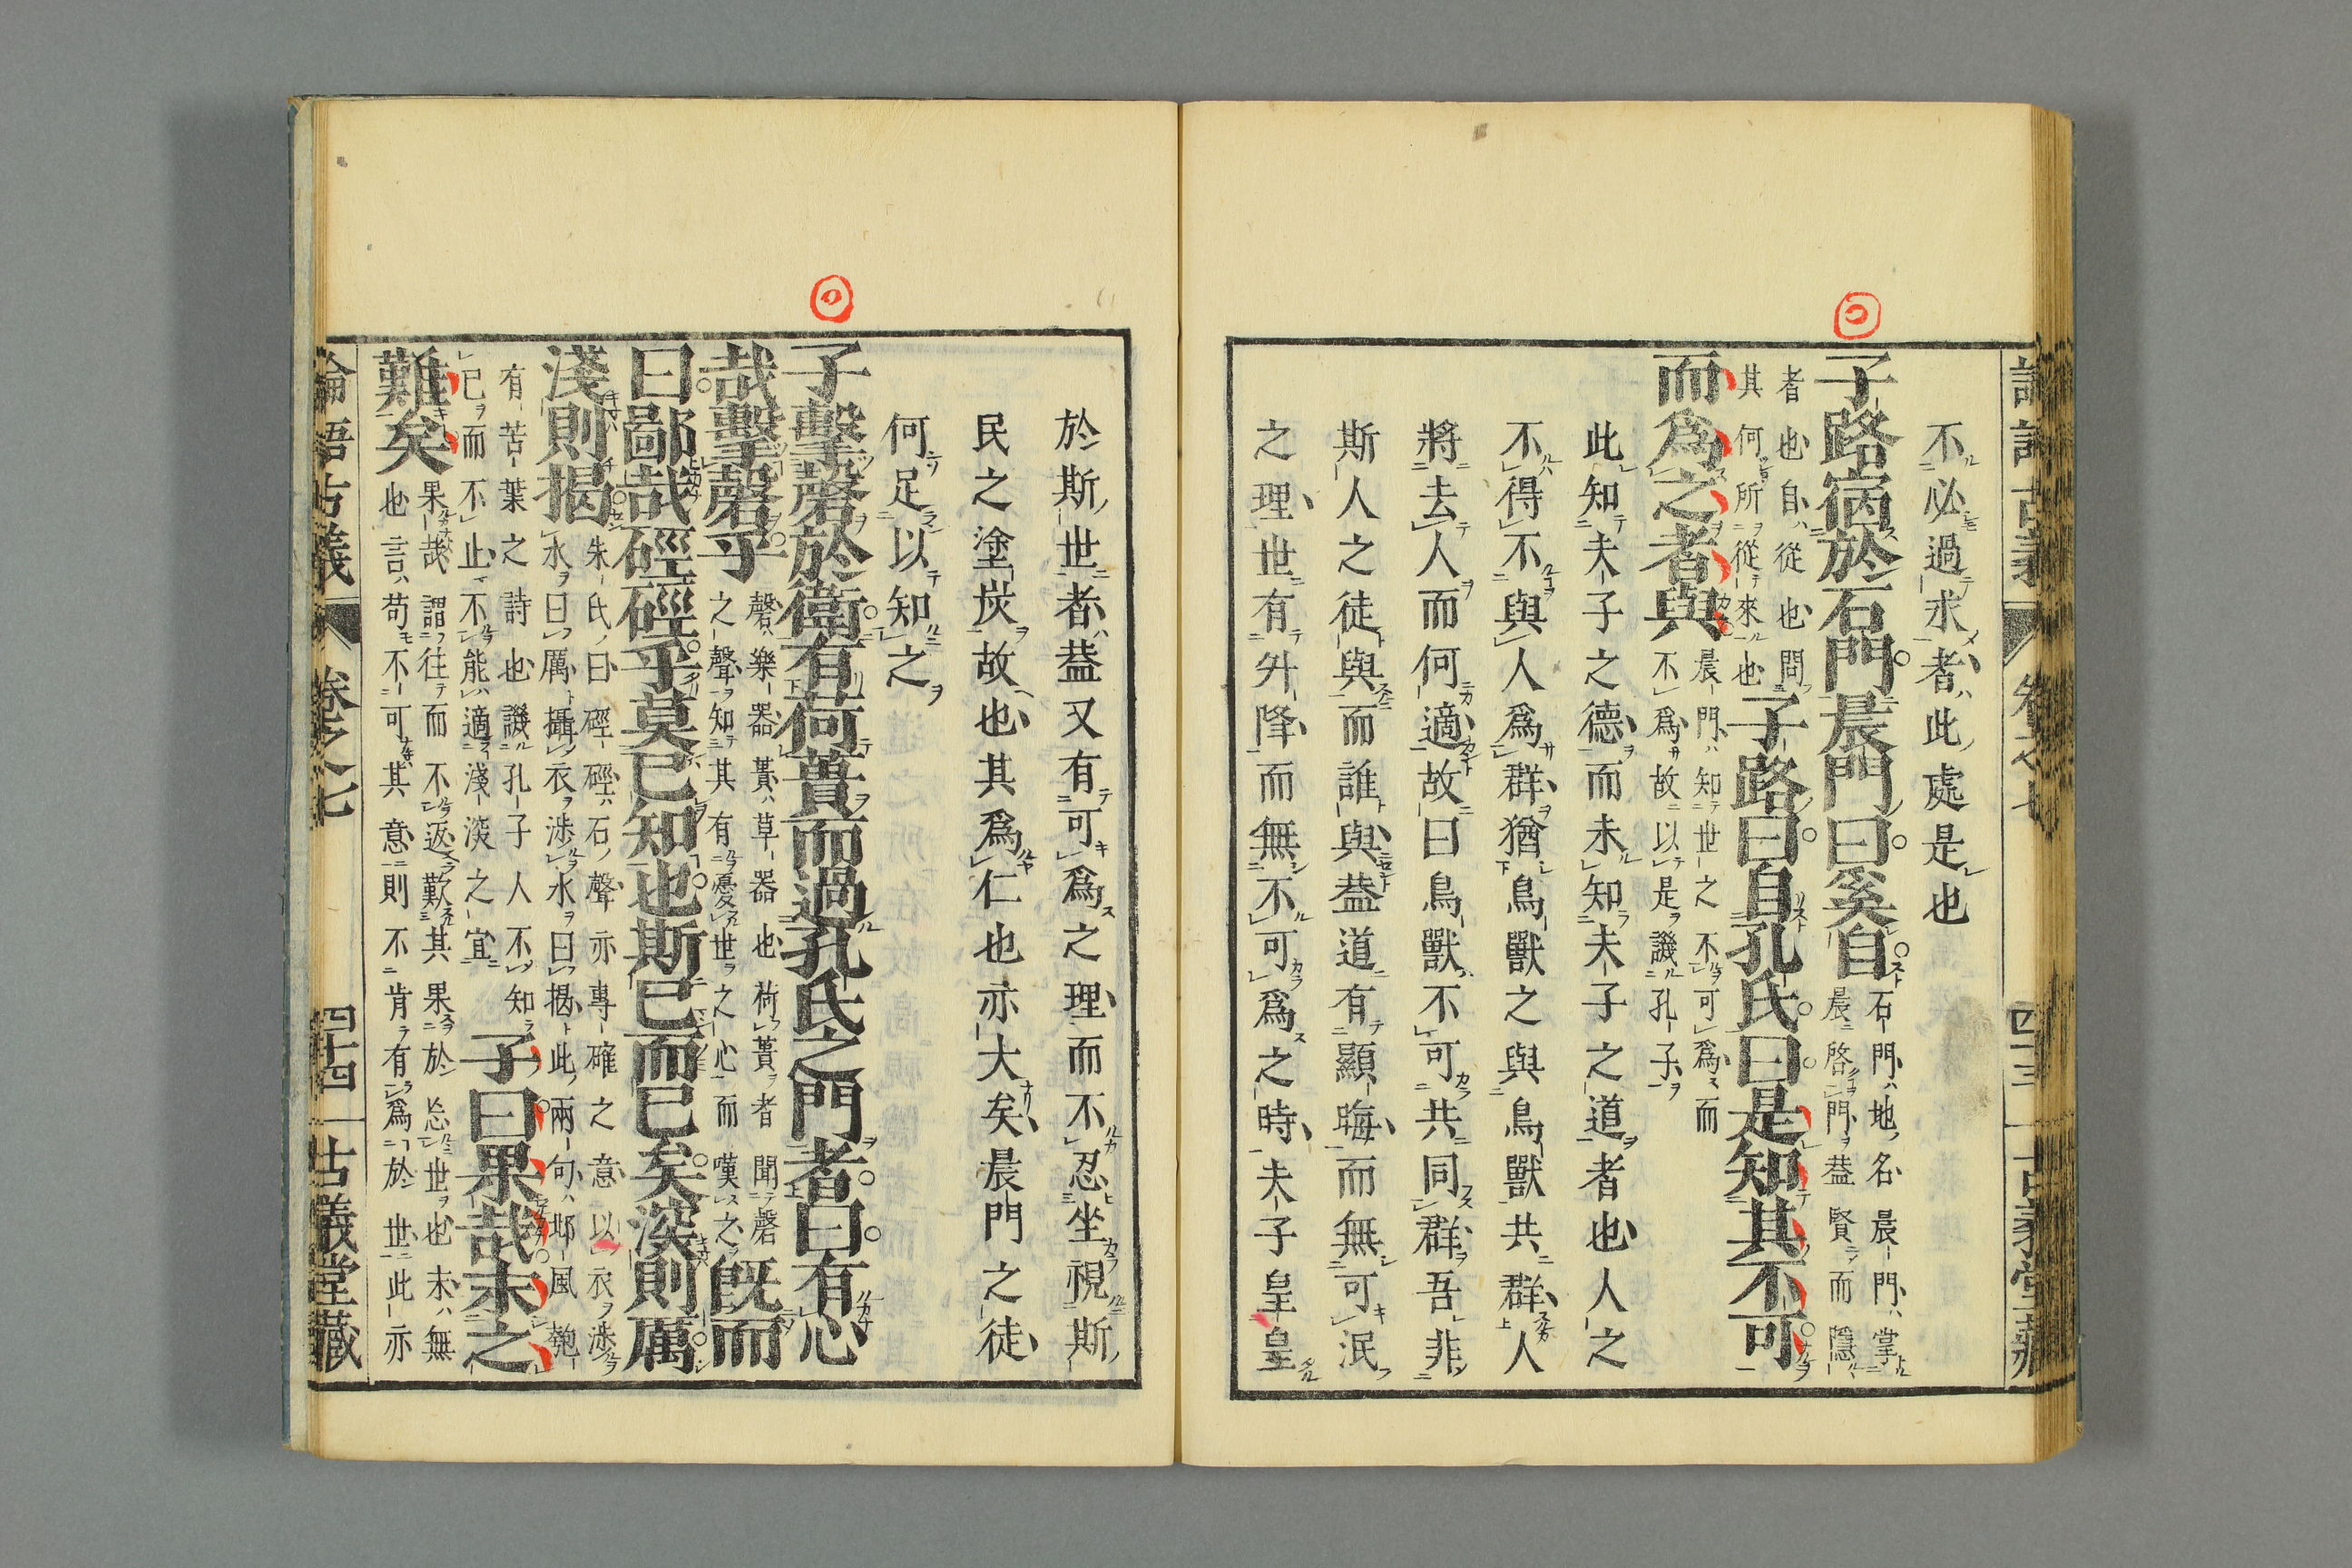 論語古義 卷之七 四十三 古義堂藏
不必過求者此處是也
子路宿於石門晨門曰奚自
石門地名晨門掌
晨啓門蓋賢而隱
者也自從也問
其何所從來也
子路曰自孔氏曰是知其不可
而爲之者與
晨門知世之不可爲而
不爲故以是譏孔子
此知夫子之德而未知夫子之道者也人之
不得不與人爲群猶鳥獸之與鳥獸共群人
將去人而何適故曰鳥獸不可共同群吾非
斯人之徒與而誰與蓋道有顯晦而無可泯
之理世有升降而無不可爲之時夫子皇皇
於斯世者蓋又有可爲之理而不忍坐視斯
民之塗炭故也其爲仁也亦大矣晨門之徒
何足以知之
子擊磬於衛有荷蕢而過孔氏之門者曰有心
哉擊磬乎
磬樂器蕢草器也荷蕢者聞磬
之聲知其有憂世之心而嘆之
既而
曰鄙哉硜硜乎莫已知也斯已而已矣深則厲
淺則揭
朱氏曰硜硜石聲亦專確之意以衣涉
水曰厲攝衣涉水曰揭此兩句邶風匏
有苦葉之詩也譏孔子人不知
已而不止不能適淺深之宜
子曰果哉末之
難矣
果哉謂往而不返歎其果於忘世也末無
也言苟不可其意則不肯有爲於世此亦
論語古義 卷之七 四十四 古義堂藏